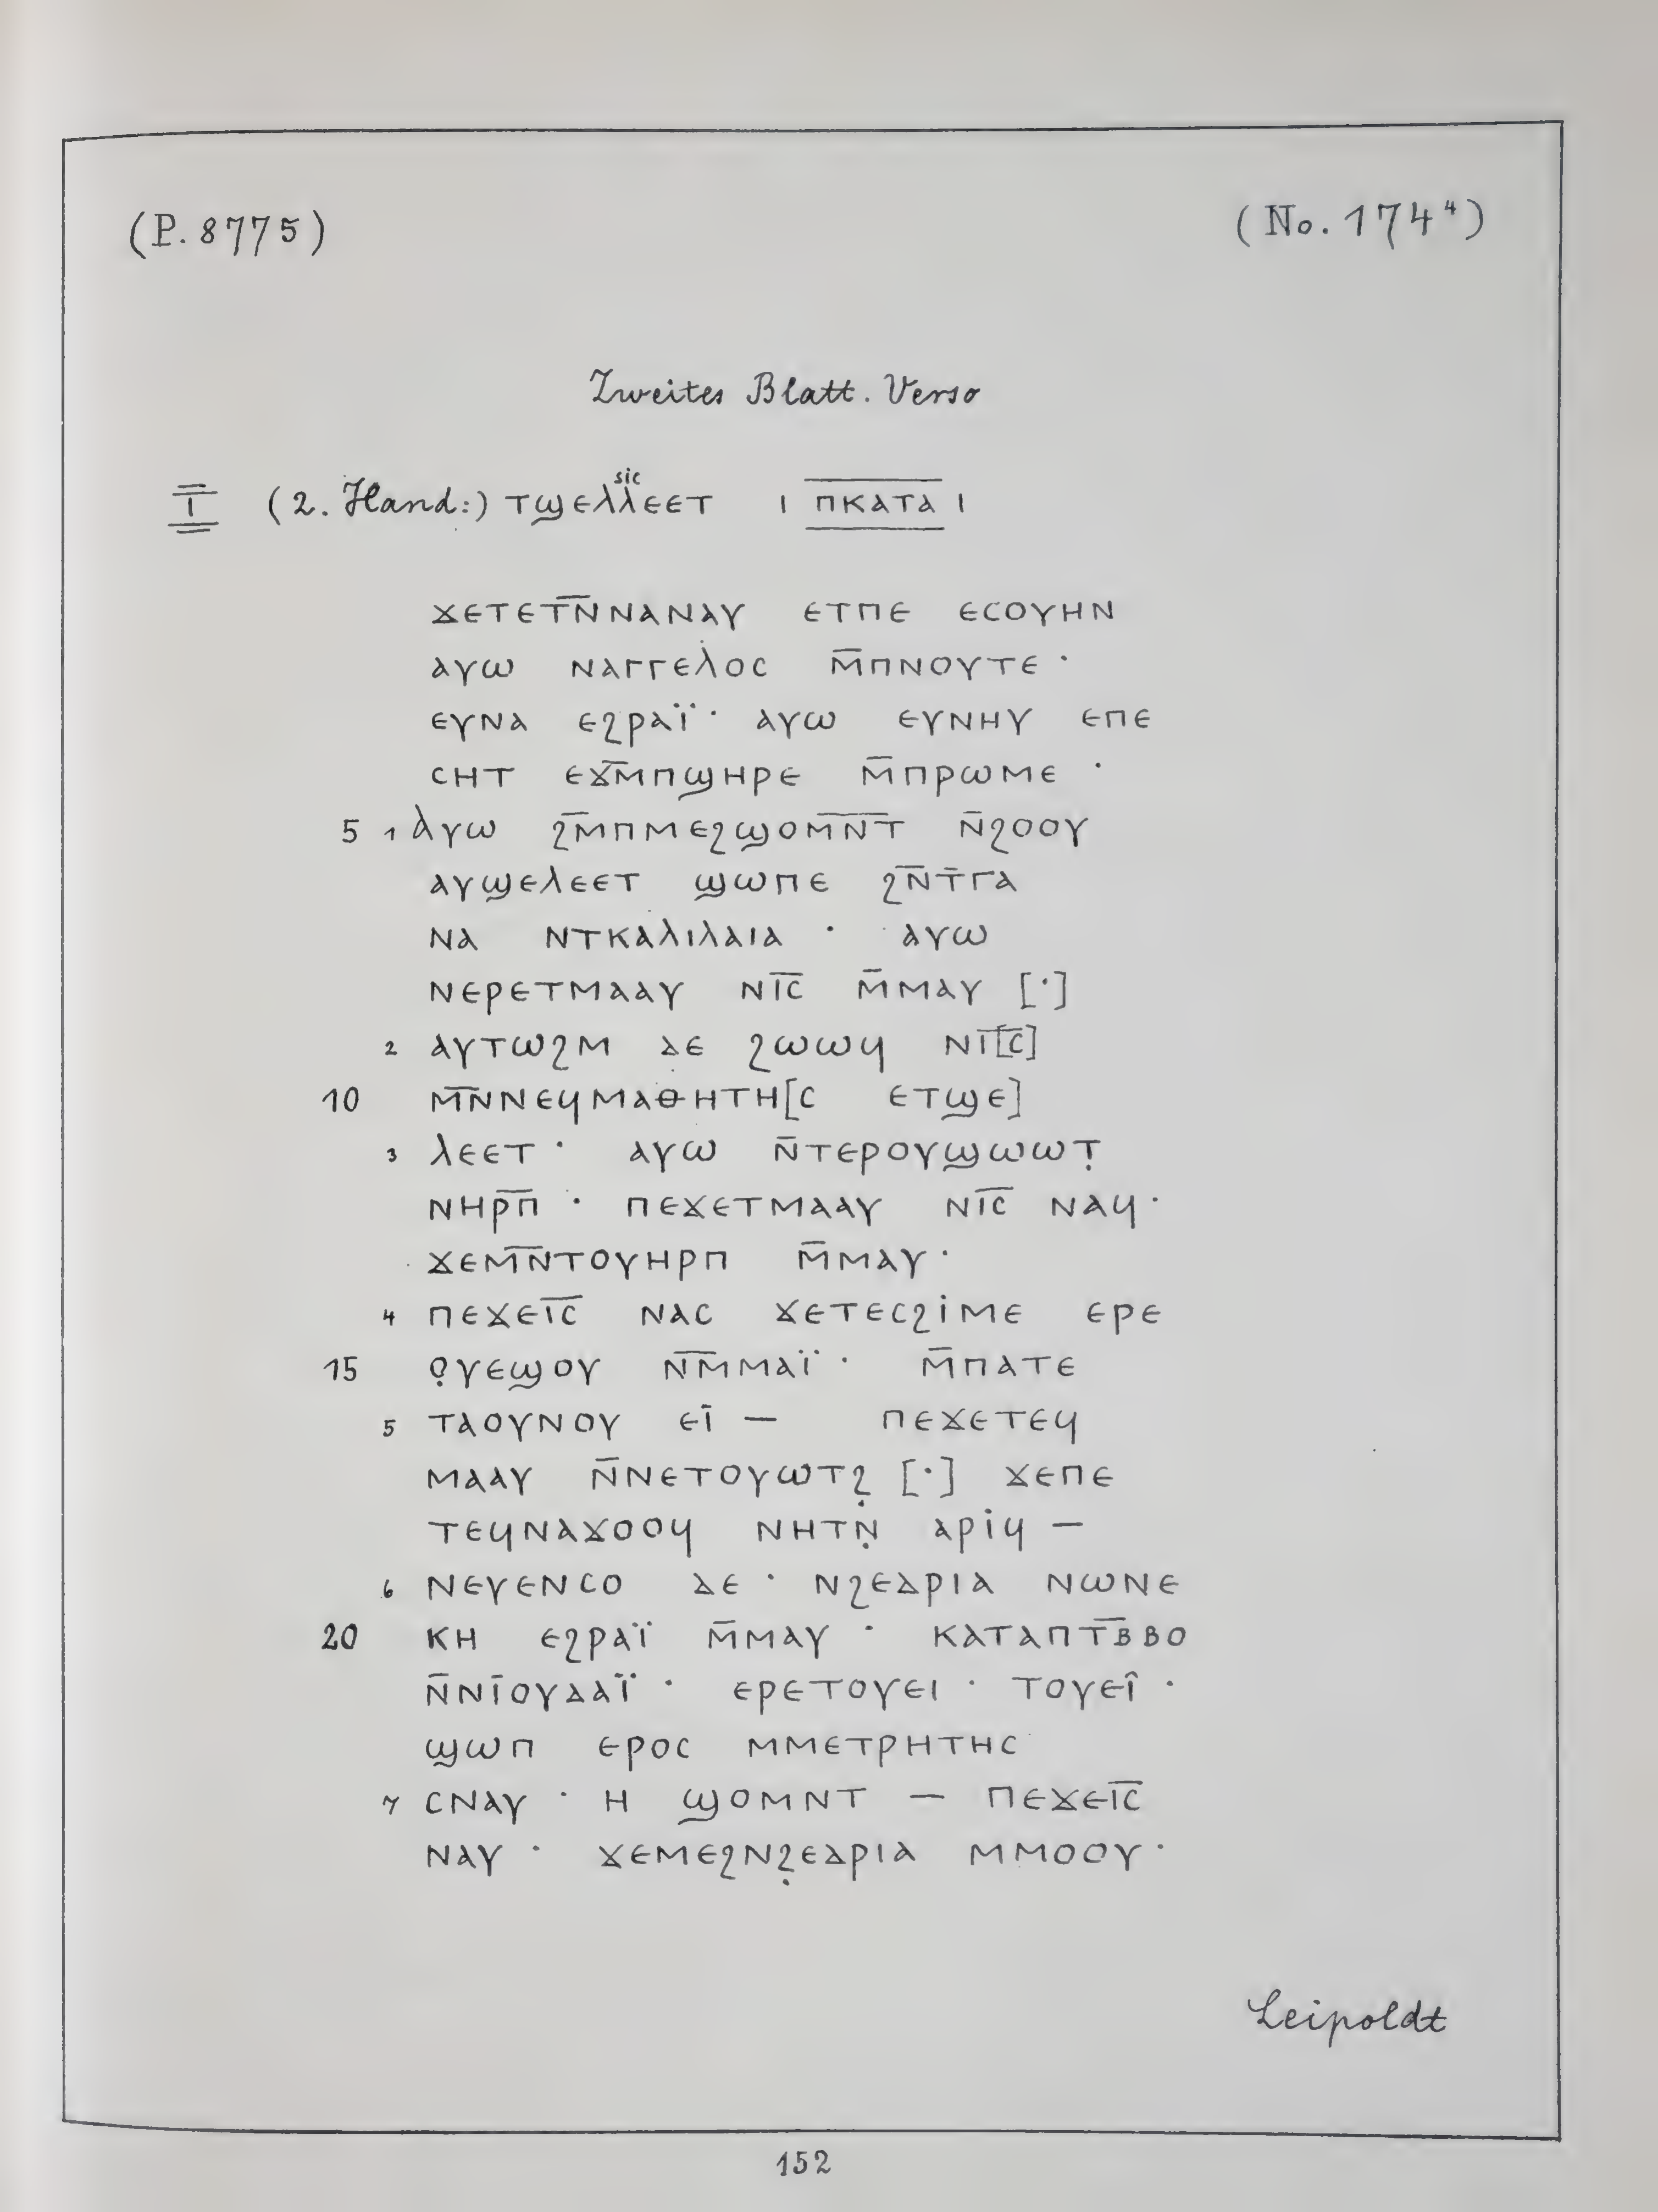 (P. 8775)
(No. 174⁴)
Zweites Blatt. Verso
Ⲓ̿ (2. Hand:) ⲧϣⲉⲗⲗⲉⲉⲧ | ⲡⲕⲁⲧⲁ |
sic
ϫⲉⲧⲉⲧⲛ̅ⲛⲁⲛⲁⲩ ⲉⲧⲡⲉ ⲉⲥⲟⲩⲏⲛ
ⲁⲩⲱ ⲛⲁⲅⲅⲉⲗⲟⲥ ⲙ̅ⲡⲛⲟⲩⲧⲉ ·
ⲉⲩⲛⲁ ⲉϩⲣⲁⲓ̈ · ⲁⲩⲱ ⲉⲩⲛⲏⲩ ⲉⲡⲉ
ⲥⲏⲧ ⲉϫⲙ̅ⲡϣⲏⲣⲉ ⲙ̅ⲡⲣⲱⲙⲉ ·
5 1 ⲁⲩⲱ ϩⲙ̅ⲡⲙⲉϩϣⲟⲙⲛ̅ⲧ̅ ⲛ̅ϩⲟⲟⲩ
ⲁⲩϣⲉⲗⲉⲉⲧ ϣⲱⲡⲉ ϩⲛ̅ⲧ̅ⲅⲁ
ⲛⲁ ⲛⲧⲕⲁⲗⲓⲗⲁⲓⲁ · ⲁⲩⲱ
ⲛⲉⲣⲉⲧⲙⲁⲁⲩ ⲛⲓ̅ⲥ̅ ⲙ̅ⲙⲁⲩ [·]
2 ⲁⲩⲧⲱϩⲙ ⲇⲉ ϩⲱⲱϥ ⲛⲓ̅[ⲥ̅]
10 ⲙⲛ̅ⲛⲉϥⲙⲁⲑⲏⲧⲏ[ⲥ ⲉⲧϣⲉ]
3 ⲗⲉⲉⲧ · ⲁⲩⲱ ⲛ̅ⲧⲉⲣⲟⲩϣⲱⲱⲧ̣
ⲛⲏⲣⲡ̅ · ⲡⲉϫⲉⲧⲙⲁⲁⲩ ⲛⲓ̅ⲥ̅ ⲛⲁϥ ·
ϫⲉⲙⲛ̅ⲧⲟⲩⲏⲣⲡ ⲙ̅ⲙⲁⲩ ·
4 ⲡⲉϫⲉⲓ̅ⲥ̅ ⲛⲁⲥ ϫⲉⲧⲉⲥϩⲓⲙⲉ ⲉⲣⲉ
15 ⲟ̣ⲩⲉϣⲟⲩ ⲛⲙ̅ⲙⲁⲓ̈ · ⲙ̅ⲡⲁⲧⲉ
5 ⲧⲁⲟⲩⲛⲟⲩ ⲉⲓ̅ — ⲡⲉϫⲉⲧⲉϥ
ⲙⲁⲁⲩ ⲛ̅ⲛⲉⲧⲟⲩⲱⲧϩ̣ [·] ϫⲉⲡⲉ
ⲧⲉϥⲛⲁϫⲟⲟϥ ⲛⲏⲧⲛ̣ ⲁⲣⲓϥ —
6 ⲛⲉⲩⲉⲛⲥⲟ ⲇⲉ · ⲛϩⲉⲇⲣⲓⲁ ⲛⲱⲛⲉ
20 ⲕⲏ ⲉϩⲣⲁⲓ̈ ⲙ̅ⲙⲁⲩ · ⲕⲁⲧⲁⲡⲧⲃ̅ⲃⲟ
ⲛ̅ⲛⲓ̅ⲟⲩⲇⲁⲓ̈ · ⲉⲣⲉⲧⲟⲩⲉⲓ · ⲧⲟⲩⲉⲓ̂ ·
ϣⲱⲡ ⲉⲣⲟⲥ ⲙⲙⲉⲧⲣⲏⲧⲏⲥ
7 ⲥⲛⲁⲩ · ⲏ ϣⲟⲙⲛⲧ — ⲡⲉϫⲉⲓ̅ⲥ̅
ⲛⲁⲩ · ϫⲉⲙⲉϩⲛϩ̣ⲉⲇⲣⲓⲁ ⲙⲙⲟⲟⲩ ·
Leipoldt
152